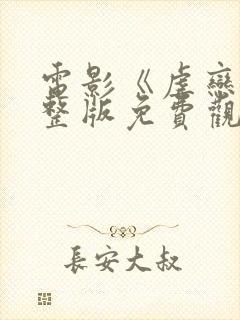 電影《虐戀
整版免費觀
長安大叔